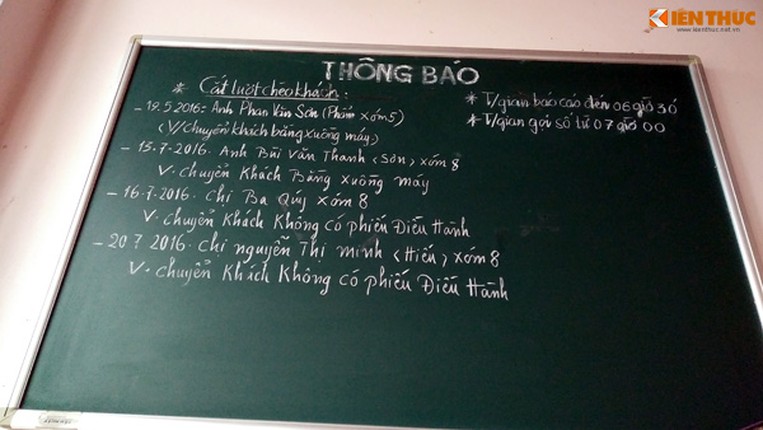 KIẾN THỨC
www.kienthuc.net.vn
THÔNG BÁO
* Cắt lượt chèo khách:
- 19.5.2016: Anh Phan Văn Sơn (Phấn xóm 5)
(V/chuyển khách bằng xuồng máy)
- 13.7.2016. Anh Bùi Văn Thanh (Sơn) xóm 8
V. chuyển Khách Bằng xuồng máy
- 16.7.2016. Chị Ba Qúy xóm 8
V. chuyển Khách Không có phiếu Điều Hành
- 20 7 2016. Chị nguyễn Thị Minh (Hiếu) xóm 8
V. chuyển Khách Không có phiếu Điều Hành
* T/gian báo cáo đến 06 giờ 30
* T/gian gọi số từ 07 giờ 00